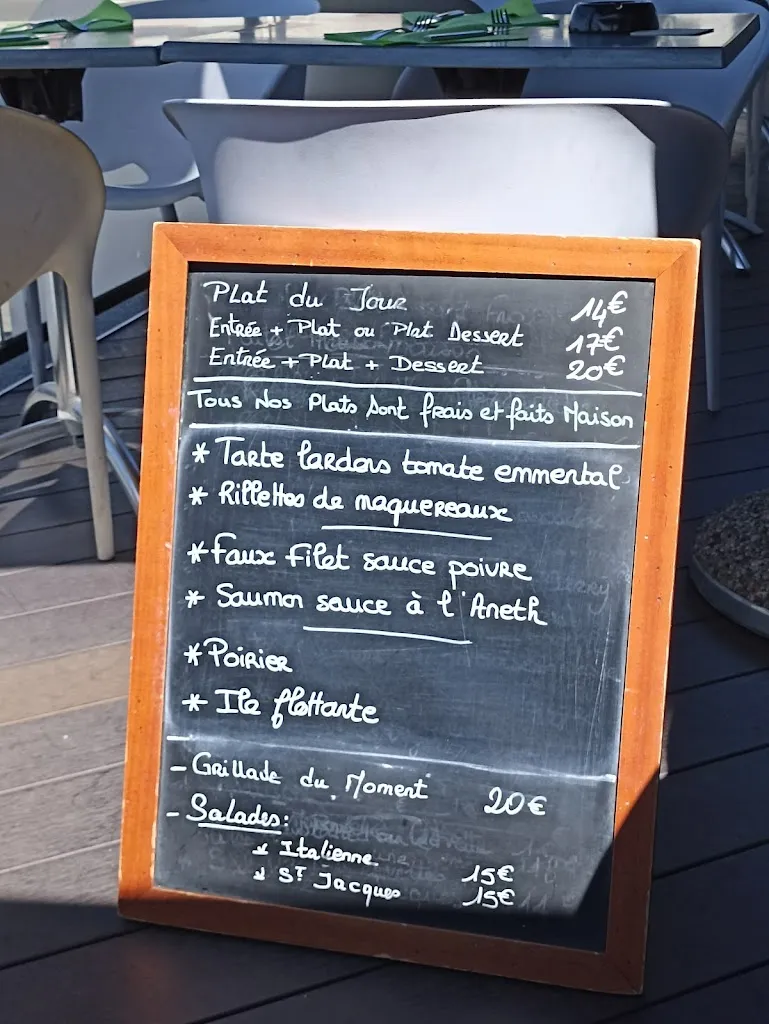 Plat du Jour 14€
Entrée + Plat ou Plat Dessert 17€
Entrée + Plat + Dessert 20€
Tous Nos Plats Sont frais et faits Maison
* Tarte lardons tomate emmental
* Rillettes de maquereaux
* Faux Filet sauce poivre
* Saumon sauce à l'Aneth
* Poirier
* Ile flottante
- Grillade du Moment 20€
- Salades:
* Italienne 15€
* ST Jacques 15€